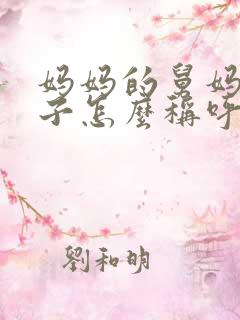 妈妈的舅妈
子怎麽稱呼
劉和明